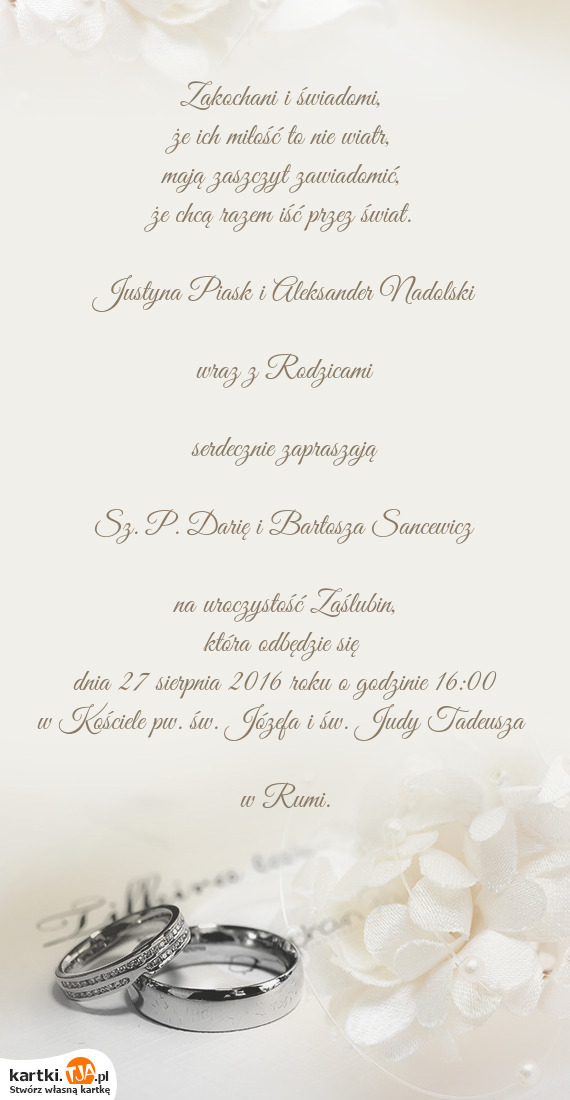 Zakochani i świadomi,
że ich miłość to nie wiatr,
mają zaszczyt zawiadomić,
że chcą razem iść przez świat.
Justyna Piask i Aleksander Nadolski
wraz z Rodzicami
serdecznie zapraszają
Sz. P. Darię i Bartosza Sancewicz
na uroczystość Zaślubin,
która odbędzie się
dnia 27 sierpnia 2016 roku o godzinie 16:00
w Kościele pw. św. Józefa i św. Judy Tadeusza
w Rumi.
kartki.TJA.pl
Stwórz własną kartkę